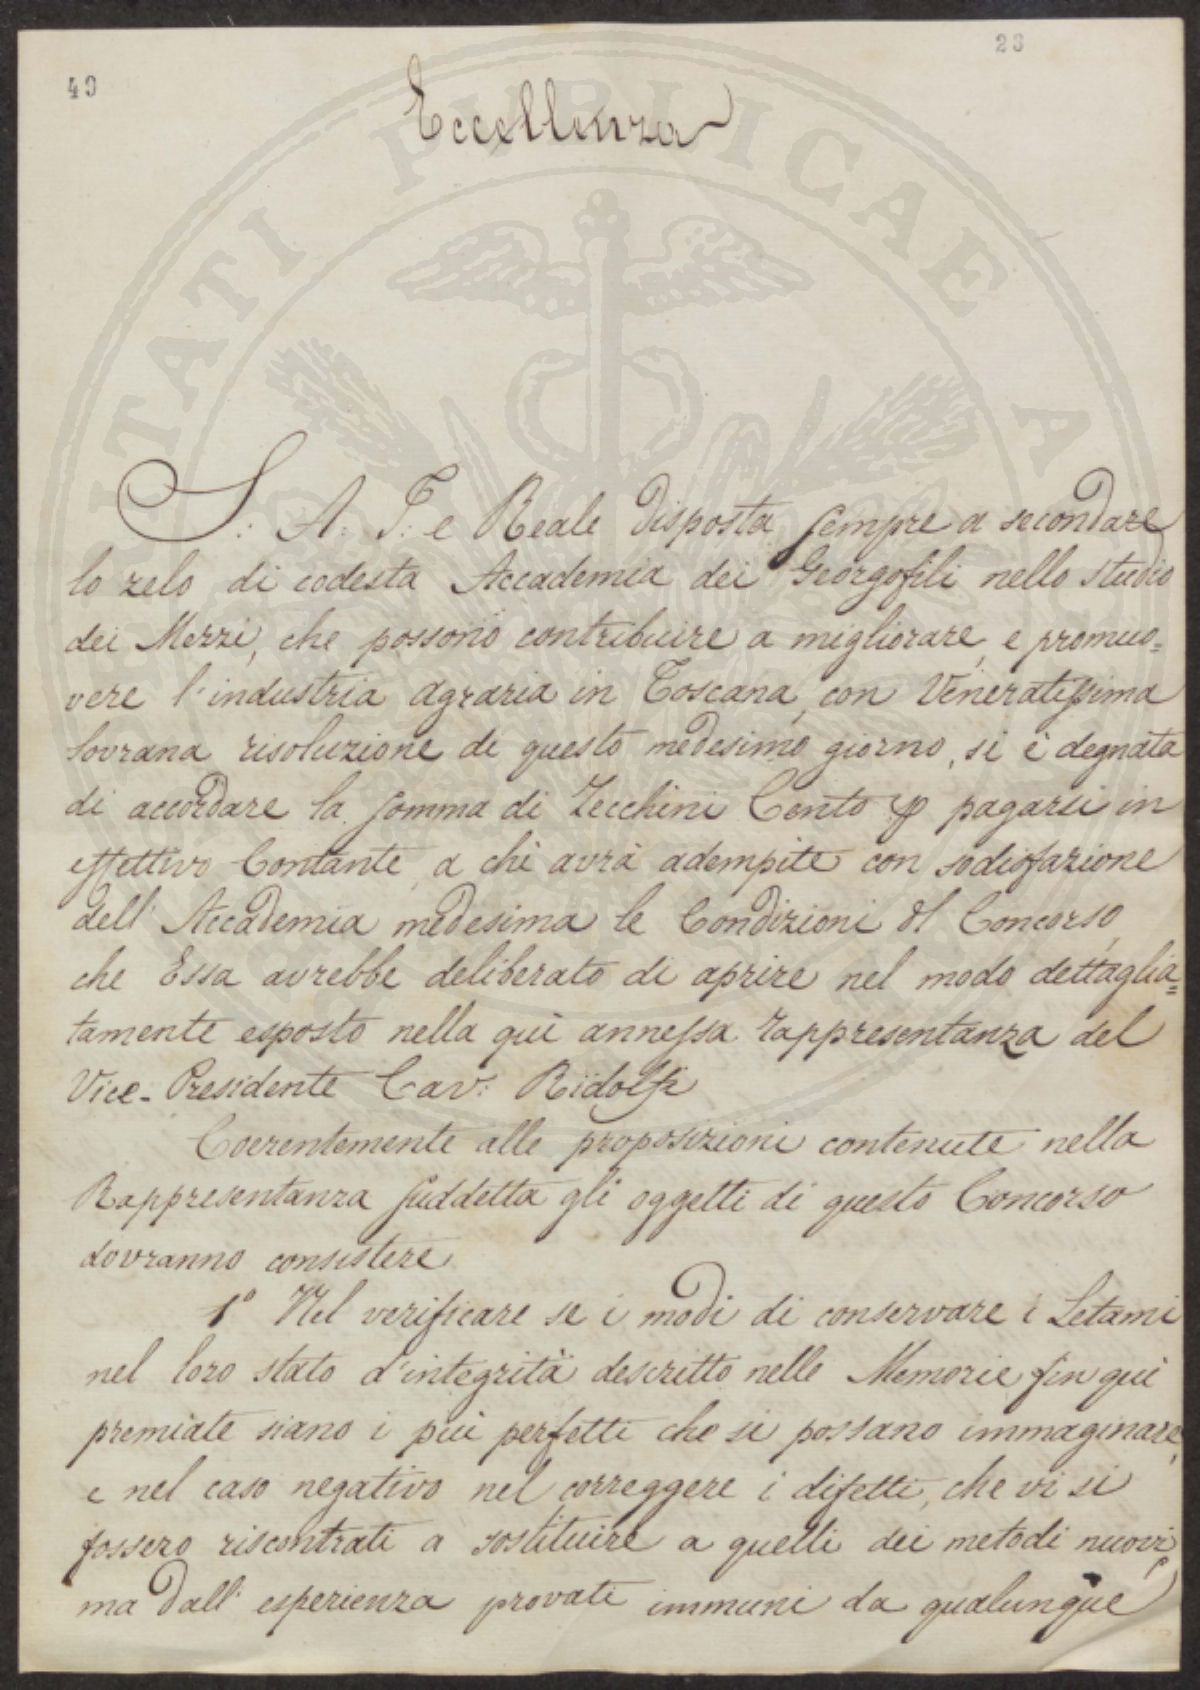 23
49
Eccellenza
S: A: I: e Reale disposta sempre a secondare
lo zelo di codesta Accademia dei Georgofili nello studio
dei Mezzi, che possono contribuire a migliorare, e promuo=
vere l'industria agraria in Toscana, con Veneratissima
Sovrana risoluzione de questo medesimo giorno, si è degnata
di accordare la somma di Zecchini Cento pagarsi in
effettivo Contante, a chi avrà adempite con sodisfazione
dell' Accademia medesima le Condizioni del Concorso,
che Essa avrebbe deliberato di aprire nel modo dettaglia=
tamente esposto nella quì annessa rappresentanza del
Vice-Presidente Cav: Ridolfi
Coerentemente alle proposizioni contenute nella
Rappresentanza suddetta gli oggetti di questo Concorso
dovranno consistere
1º Nel verificare se i modi di conservare i Letami
nel loro stato d'integrità descritto nelle Memorie fin quì
premiate siano i più perfetti che si possano immaginare,
e nel caso negativo nel correggere i difetti, che vi si
fossero riscontrati a sostituire a quelli dei metodi nuovi,
ma dall' esperienza provati immuni da qualunque
UTILITATI PUBLICAE A